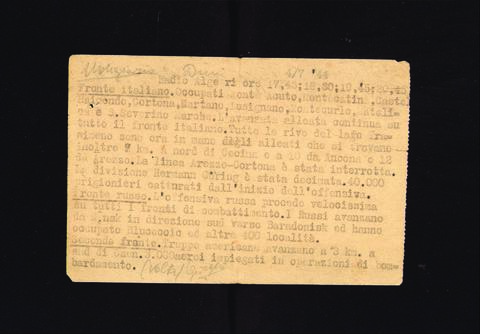 4/7 '44
Radio Alge ri ore 17,45;18,30;19,45;20,45
Fronte italiano. Occupati Monte Acuto, Montecatini, Castel
Raimondo, Cortona,
ca e S. Severino Marche. L'avanzata alleata continua su
tutto il fronte italiano. Tutte le rive del lago Tra=
simeno sono ora in mano degli alleati che si trovano
inoltre 7 km. a nord di Cecina e a 10 da Ancona e 12
da Arezzo. La linea Arezzo-Cortona è stata interrotta.
La divisione Hermann Göring è stata decimata. 40.000
prigionieri catturati dall'inizio dell'offensiva.
Fronte russo. L'offensiva russa procede velocissima
su tutti i fronti di combattimento. I Russi avanzano
da Minsk in direzione sud verso Baradomisk ed hanno
occupato ed altre 400 località.
Secondo fronte. Truppe americane avanzano a 3 km. a
sud di Caen. 3.000 aerei impiegati in operazioni di bom=
bardamento. (Volta)